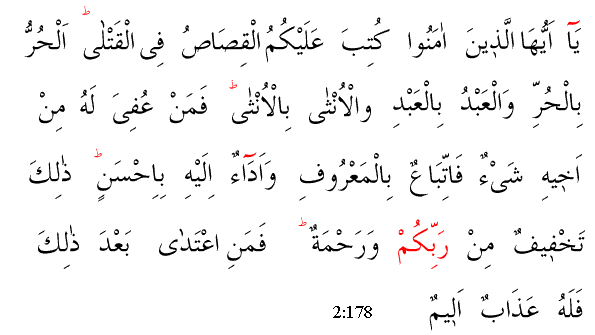 يَٓا اَيُّهَا الَّذٖينَ اٰمَنُوا كُتِبَ عَلَيْكُمُ الْقِصَاصُ فِى الْقَتْلٰىؕ اَلْحُرُّ
بِالْحُرِّ وَالْعَبْدُ بِالْعَبْدِ والْاُنْثٰى بِالْاُنْثٰىؕ فَمَنْ عُفِىَ لَهُ مِنْ
اَخٖيهِ شَىْءٌ فَاتِّبَاعٌ بِالْمَعْرُوفِ وَاَدَٓاءٌ اِلَيْهِ بِاِحْسَنٍؕ ذٰلِكَ
تَخْفٖيفٌ مِنْ رَبِّكُمْ وَرَحْمَةٌؕ فَمَنِ اعْتَدٰى بَعْدَ ذٰلِكَ
فَلَهُ عَذَابٌ اَلٖيمٌ 2:178